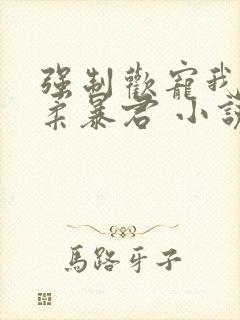 強制歡寵我
柔暴君 小說
馬路牙子